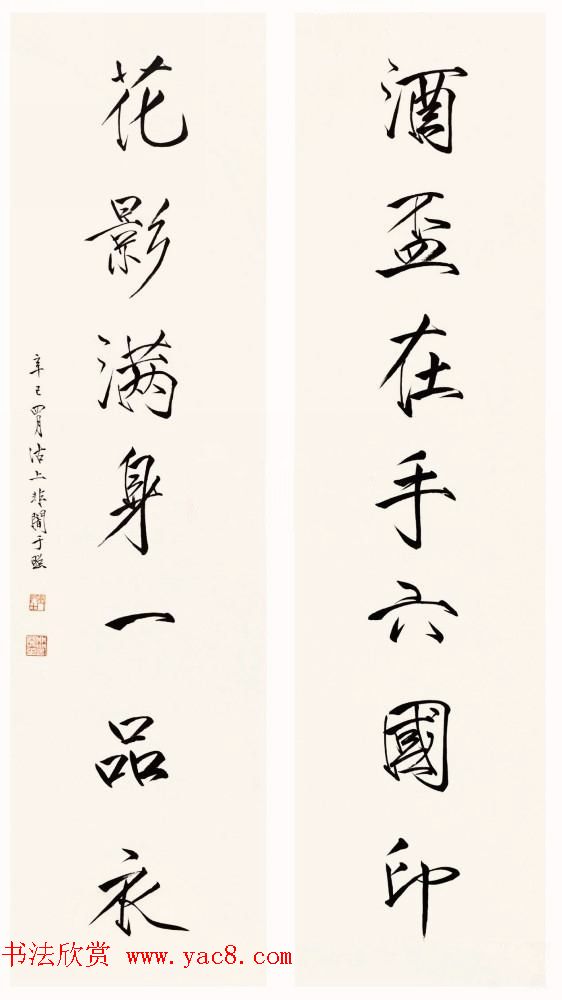 酒盃在手六國印
花影滿身一品衣
辛巳四月沽上非闇于照
书法欣赏 www.yac8.com